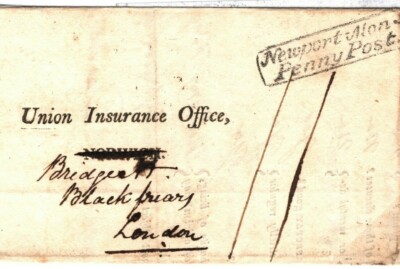 Newport Mon-
Penny Post
Union Insurance Office,
NORWICH.
Bridge St.
Blackfriars
London
11